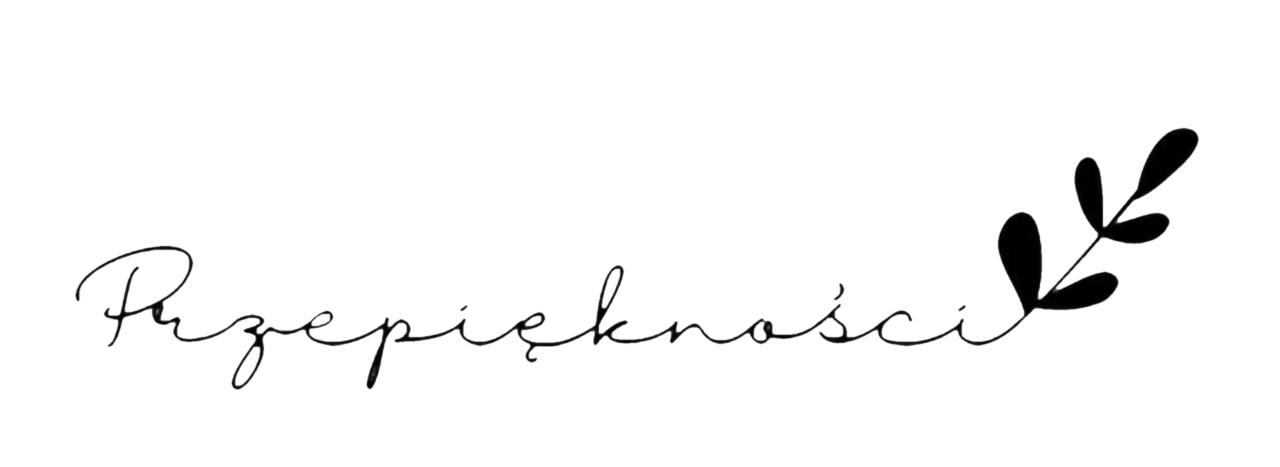 Przepiękności